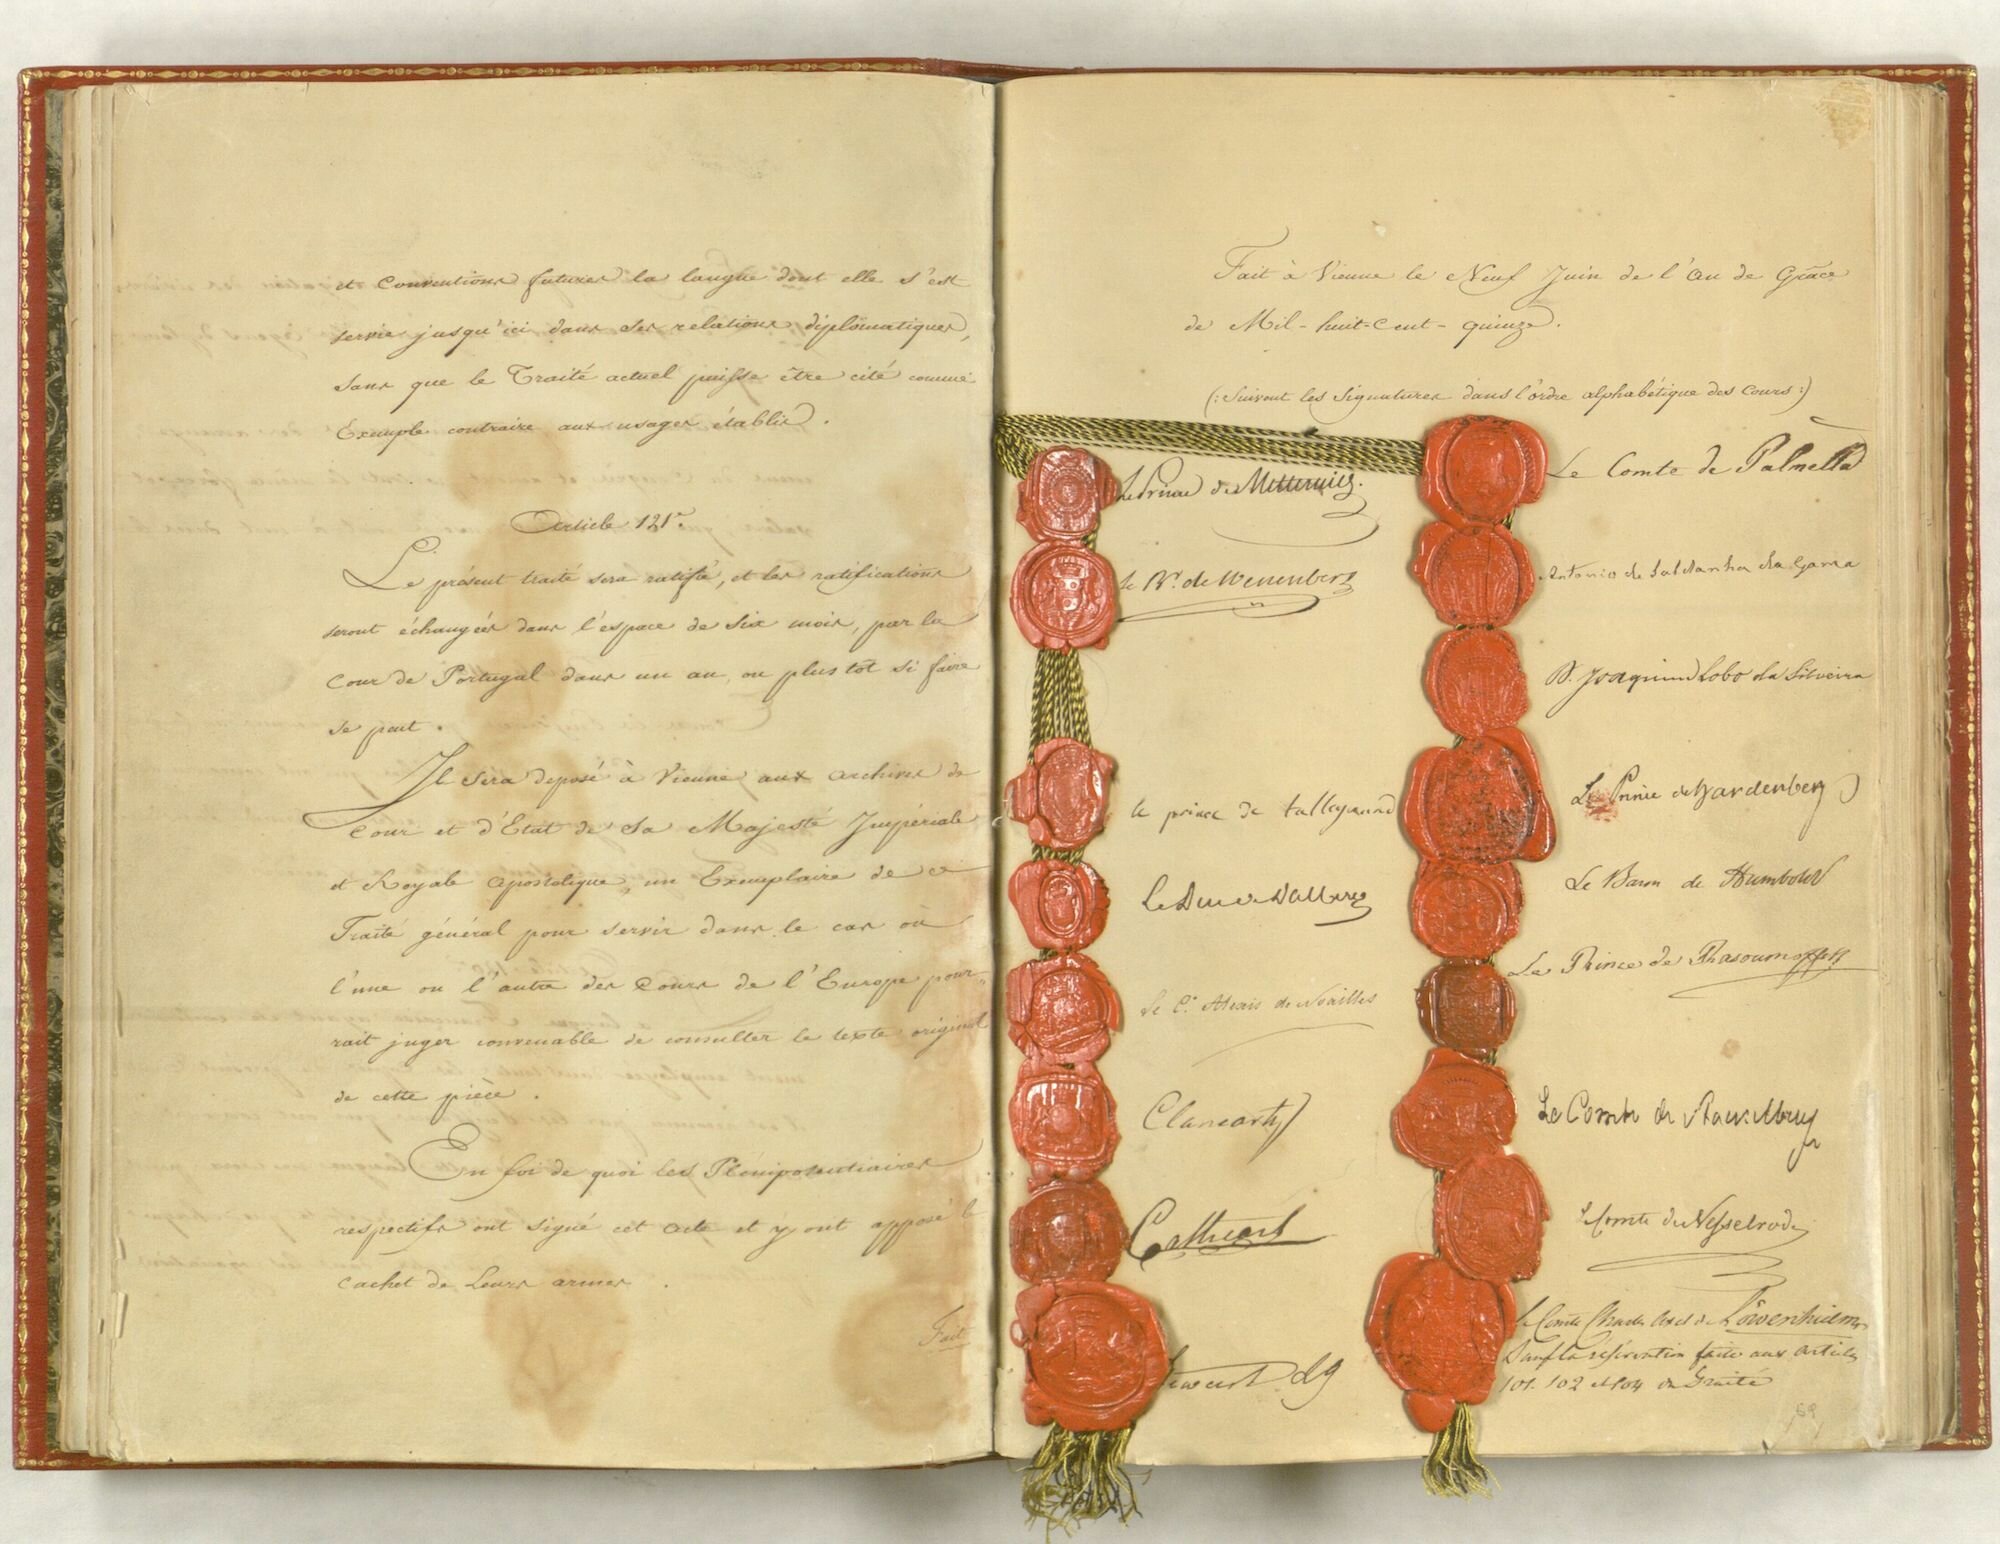 et Conventions futures la langue dont elle s'est
servie jusqu'ici dans ses relations diplômatiques,
sans que le Traité actuel puisse être cité comme
Exemple contraire aux usages établis.
Article 121.
Le présent traité sera ratifié, et les ratifications
seront échangées dans l'espace de six mois, par la
Cour de Portugal dans un an, ou plus tôt si faire
se peut.
Il sera déposé à Vienne aux archives de
Cour et d'Etat de Sa Majesté Impériale
et Royale Apostolique, un Exemplaire de ce
Traité général pour servir dans le cas où
l'une ou l'autre des Cours de l'Europe pour-
rait juger convenable de consulter le texte original
de cette pièce.
En foi de quoi les Plénipotentiaires
respectifs ont signé cet Acte et y ont apposé le
cachet de Leurs armes.
Fait
Fait à Vienne le Neuf Juin de l'an de Grâce
de Mil-huit-Cent-quinze.
(: Suivent les Signatures dans l'ordre alphabétique des Cours :)
Le Prince de Metternich.
le Bn. de Wessenberg
le prince de talleyrand
Le Duc de Dalberg
Le Ce. Alexis de Noailles
Clancarty
Cathcart
Stewart LG
Le Comte de Palmella
Antonio de Saldanha da Gama
D. Joaquim Lobo da Silveira
Le Prince de Hardenberg
Le Baron de Humboldt
Le Prince de Rasoumoffsky
Le Comte de Stackelberg
Le Comte de Nesselrode
le Comte Charles Axel de Löwenhielm
Sauf la réservation faite aux articles
101. 102 et 104 du Traité
59